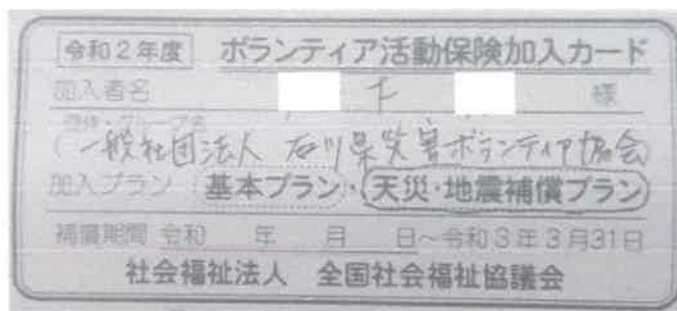 令和2年度 ボランティア活動保険加入カード
加入者名 様
団体・グループ名
(一般社団法人 石川県災害ボランティア協会)
加入プラン 基本プラン・天災・地震補償プラン
補償期間 令和 年 月 日~令和3年3月31日
社会福祉法人 全国社会福祉協議会